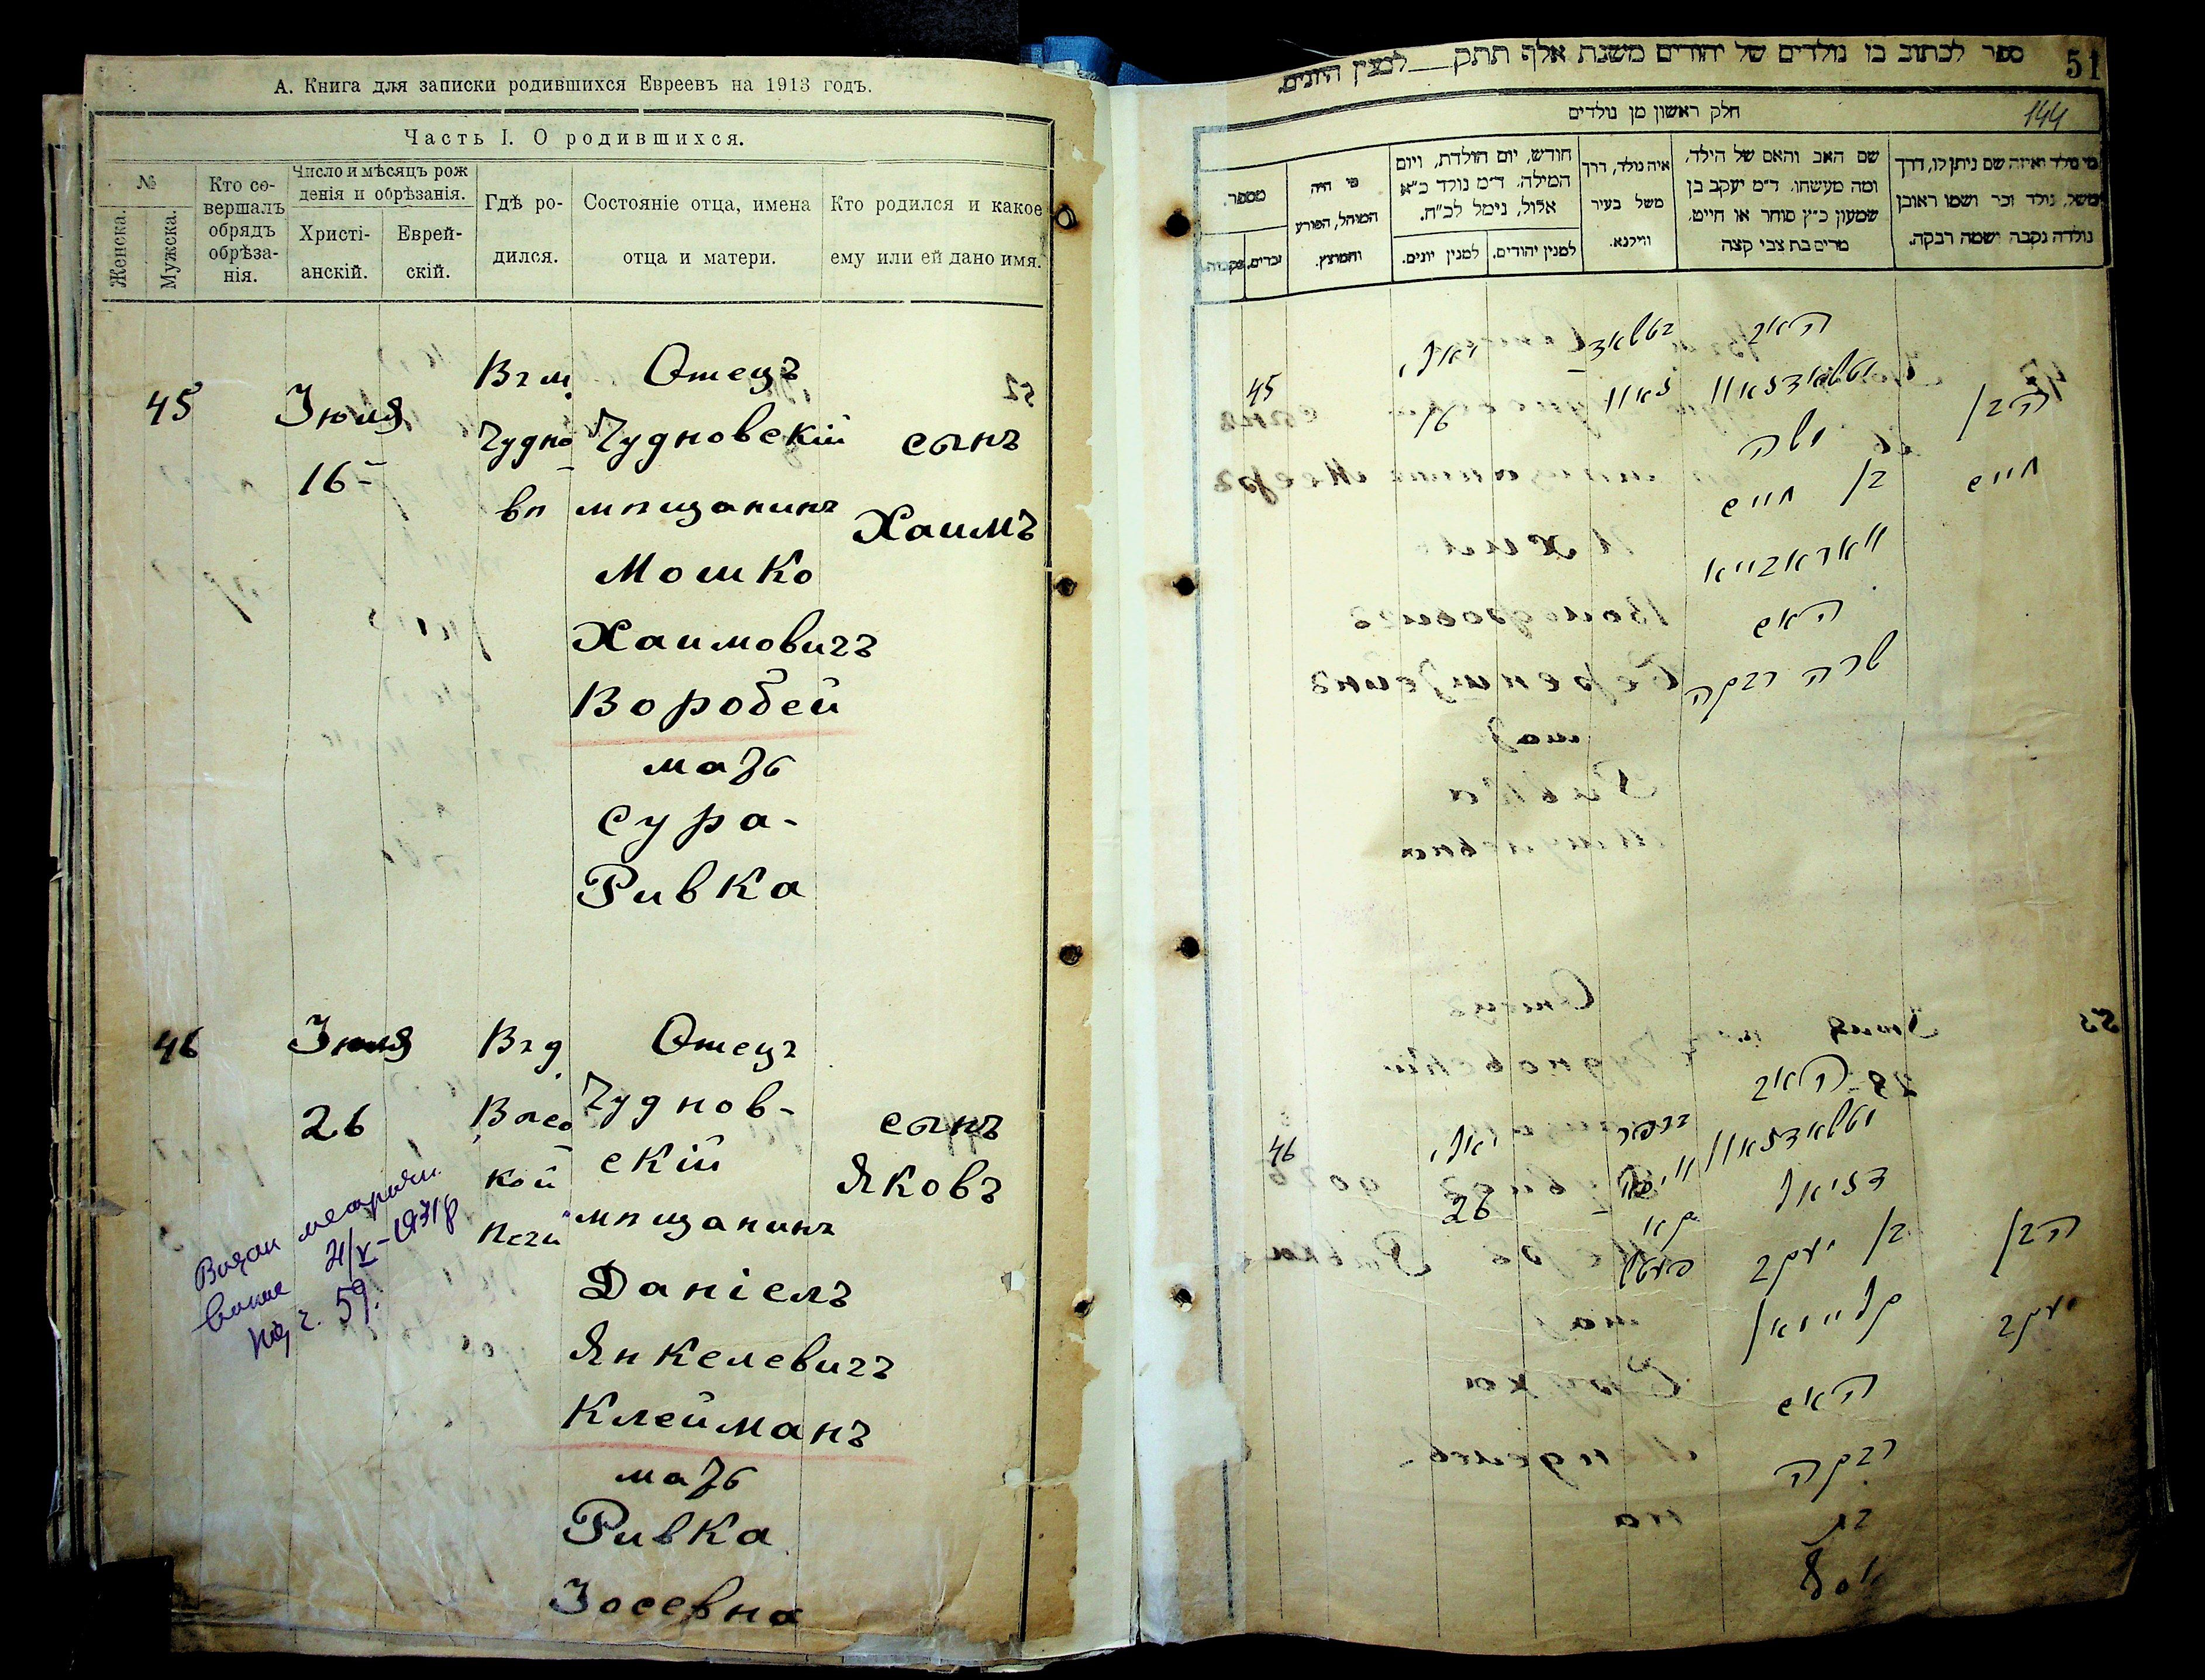 А. Книга для записки родившихся Евреевъ на 1913 годъ.
Часть I. О родившихся.
№
Женска.
Мужска.
Кто со-
вершалъ
обрядъ
обрѣза-
нія.
Число и мѣсяцъ рож
денія и обрѣзанія.
Христі-
анскій.
Еврей-
скій.
Гдѣ ро-
дился.
Состояніе отца, имена
отца и матери.
Кто родился и какое
ему или ей дано имя.
45
Іюля
16
Въ м.
Чудно
вѣ
Отецъ
Чудновскій
мѣщанинъ
Мошко
Хаимовичъ
Воробей
мать
Сура-
Ривка
сынъ
Хаимъ
46
Іюля
26
Въ д
кой
Отецъ
Чуднов-
скій
мѣщанинъ
Даніелъ
Янкелевичъ
Клейманъ
мать
Ривка
Іосевна
сынъ
Яковъ
59.
ספר לכתוב בו נולדים של יהודים משנת אלף תתק__למנין היונים.
51
144
חלק ראשון מן נולדים
מספר.
זכרים.
נקבות.
מי היה
המוהל, הפורע
והמוצץ.
חודש, יום הולדת, ויום
המילה. ד״מ נולד כ״א
אלול, נימל לכ״ח.
למנין יונים.
למנין יהודים.
איה נולד, דרך
משל בעיר
ווילנא.
שם האב והאם של הילד,
ומה מעשהו. ד״מ יעקב בן
שמעון כ״ץ סוחר או חייט,
מרים בת צבי קצה
מי נולד ואיזה שם ניתן לו, דרך
משל, נולד זכר ושמו ראובן
נולדה נקבה ושמה רבקה.
45
יולי
16
האב
משה
בן חיים
וואראבייא
האם
שרה רבקה
הבן
חיים
46
יולי
26
האב
דניאל
בן יעקב
קליימאן
האם
רבקה
בת
יוסף
הבן
יעקב